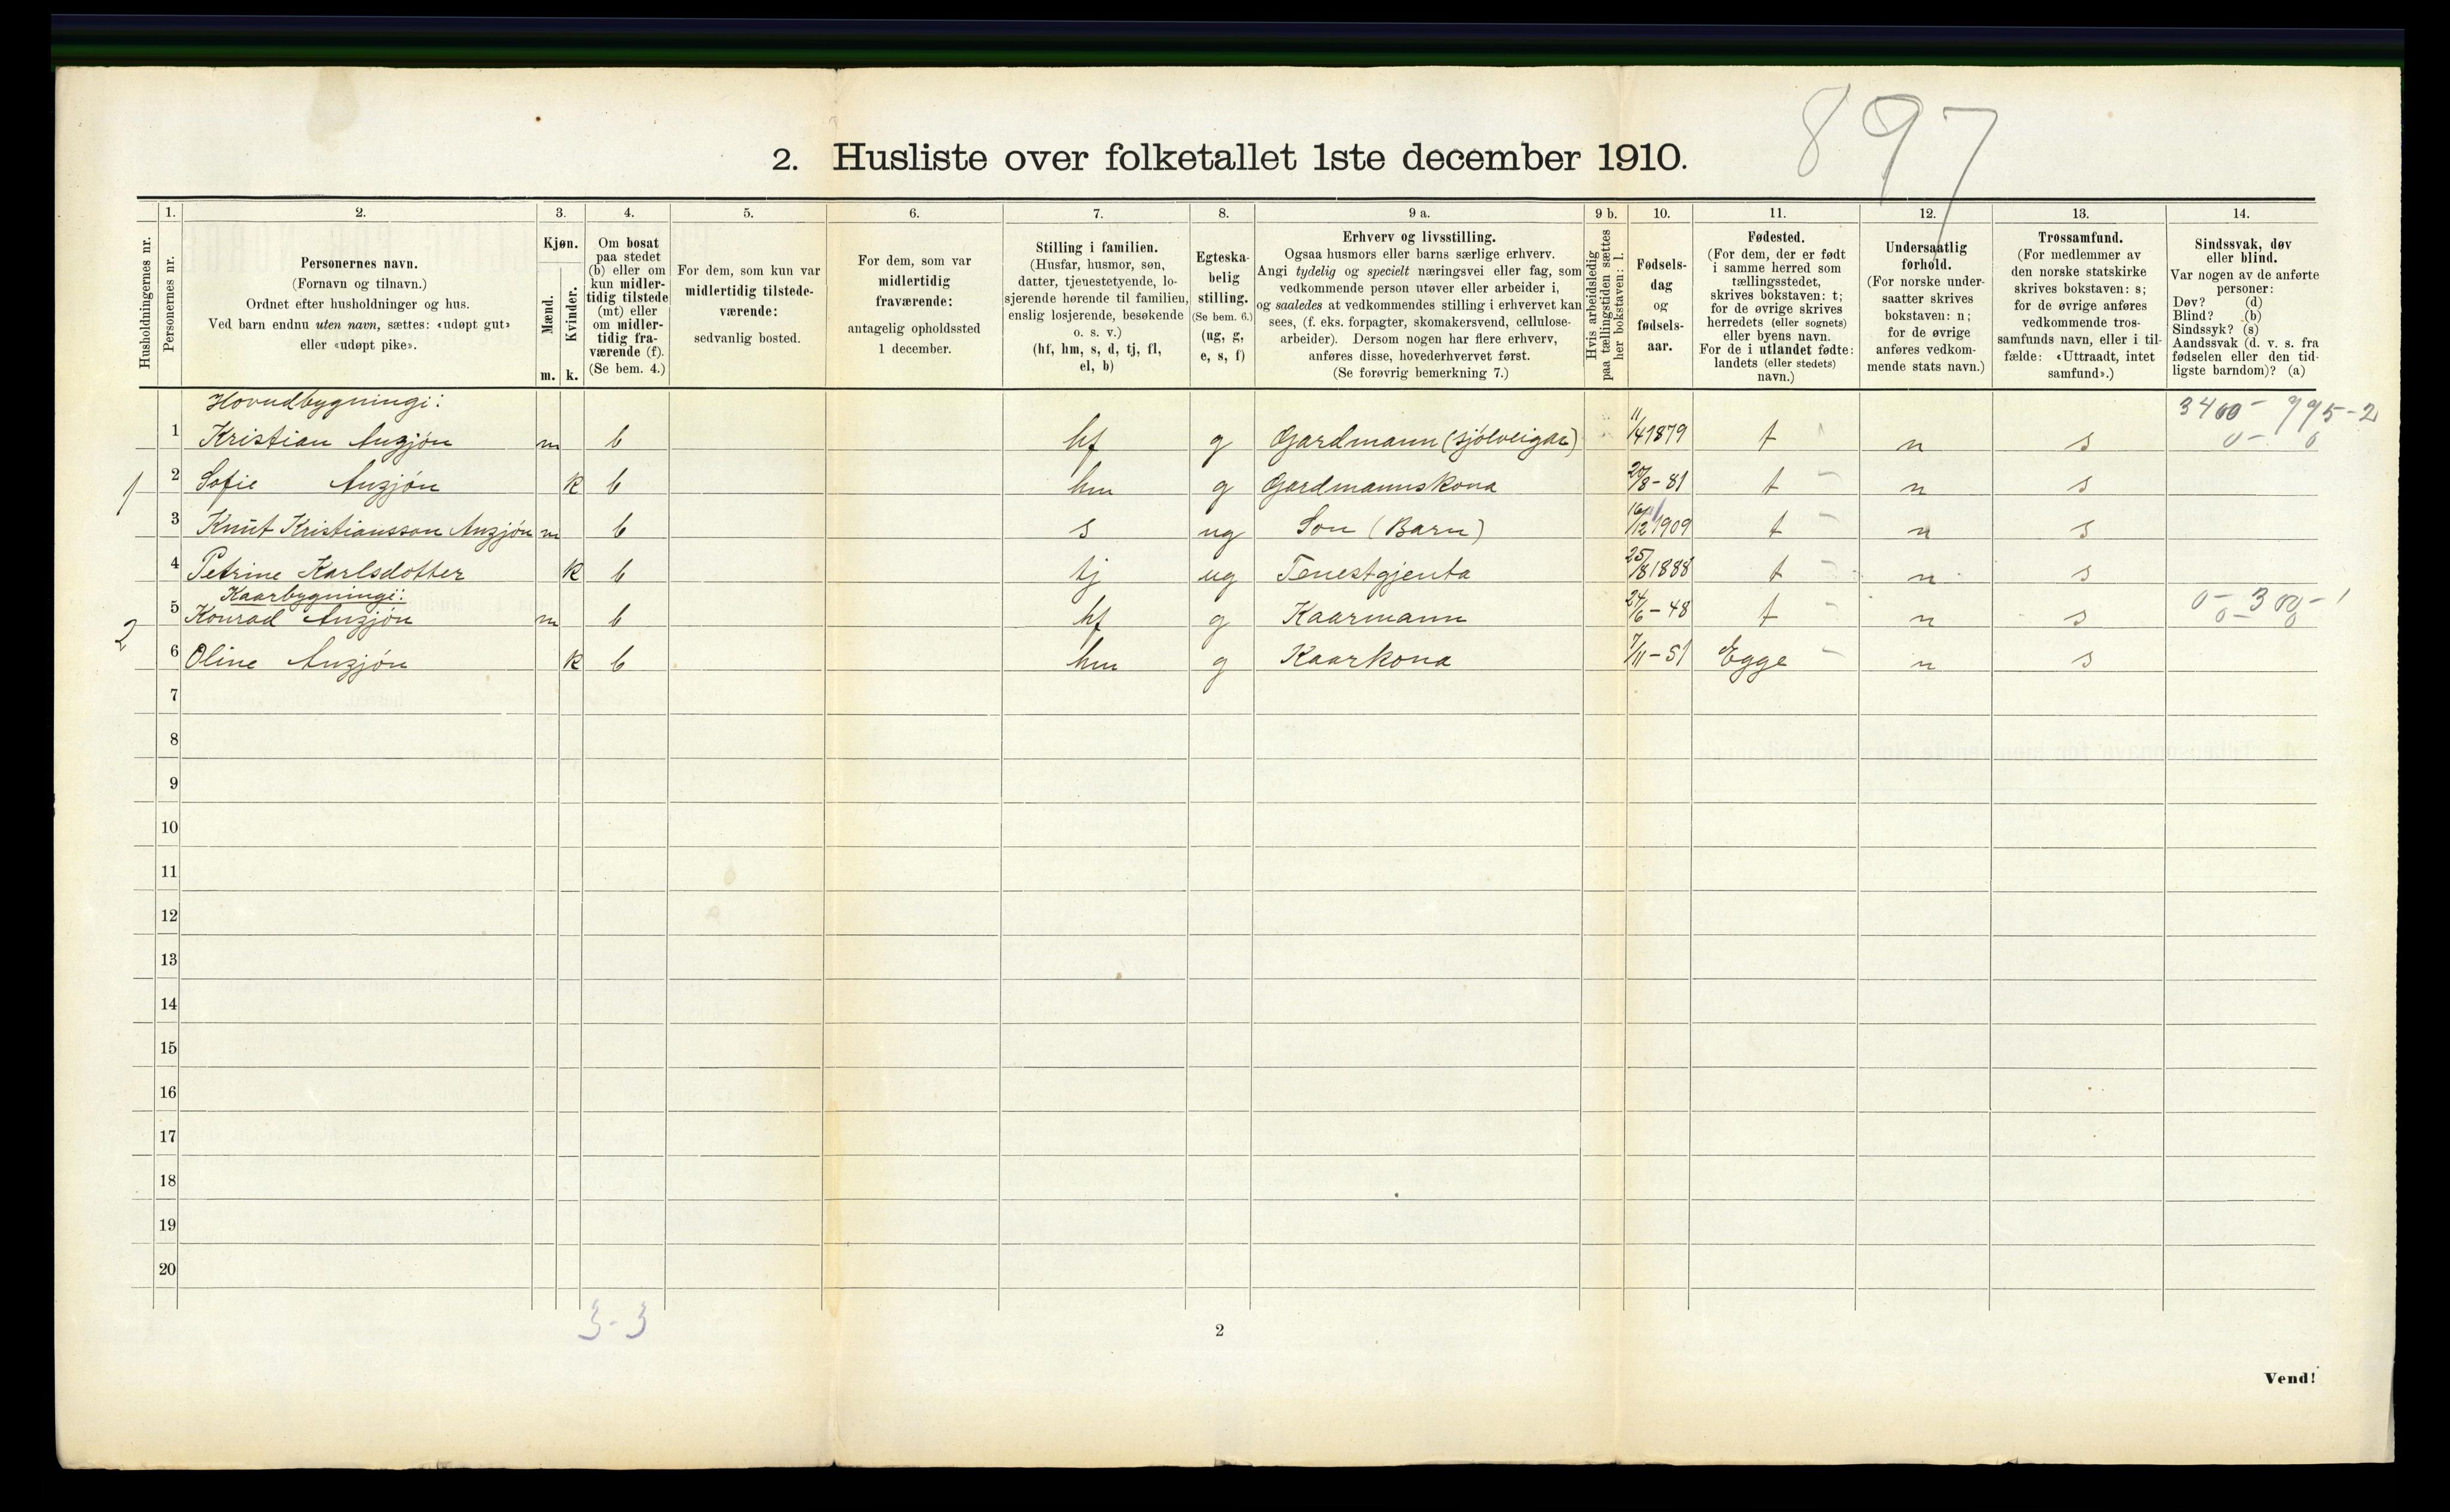 897
2. Husliste over folketallet 1ste december 1910.
Husholdningernes nr.
1.
Personernes nr.
2.
Personernes navn.
(Fornavn og tilnavn.)
Ordnet efter husholdninger og hus.
Ved barn endnu uten navn, sættes: «udøpt gut»
eller «udøpt pike».
3.
Kjøn.
Mænd.
Kvinder.
m. k.
4.
Om bosat
paa stedet
(b) eller om
kun midler-
tidig tilstede
(mt) eller
om midler-
tidig fra-
værende (f).
(Se bem. 4.)
5.
For dem, som kun var
midlertidig tilstede-
værende:
sedvanlig bosted.
6.
For dem, som var
midlertidig
fraværende:
antagelig opholdssted
1 december.
7.
Stilling i familien.
(Husfar, husmor, søn,
datter, tjenestetyende, lo-
sjerende hørende til familien,
enslig losjerende, besøkende
o. s. v.)
(hf, hm, s, d, tj, fl,
el, b)
8.
Egteska-
belig
stilling.
(Se bem. 6.)
(ug, g,
e, s, f)
9 a.
Erhverv og livsstilling.
Ogsaa husmors eller barns særlige erhverv.
Angi tydelig og specielt næringsvei eller fag, som
vedkommende person utøver eller arbeider i,
og saaledes at vedkommendes stilling i erhvervet kan
sees, (f. eks. forpagter, skomakersvend, cellulose-
arbeider). Dersom nogen har flere erhverv,
anføres disse, hovederhvervet først.
(Se forøvrig bemerkning 7.)
9 b.
Hvis arbeidsledig
paa tællingstiden sættes
her bokstaven: l.
10.
Fødsels-
dag
og
fødsels-
aar.
11.
Fødested.
(For dem, der er født
i samme herred som
tællingsstedet,
skrives bokstaven: t;
for de øvrige skrives
herredets (eller sognets)
eller byens navn.
For de i utlandet fødte:
landets (eller stedets)
navn.)
12.
Undersaatlig
forhold.
(For norske under-
saatter skrives
bokstaven: n;
for de øvrige
anføres vedkom-
mende stats navn.)
13.
Trossamfund.
(For medlemmer av
den norske statskirke
skrives bokstaven: s;
for de øvrige anføres
vedkommende tros-
samfunds navn, eller i til-
fælde: «Uttraadt, intet
samfund».)
14.
Sindssvak, døv
eller blind.
Var nogen av de anførte
personer:
Døv? (d)
Blind? (b)
Sindssyk? (s)
Aandssvak (d. v. s. fra
fødselen eller den tid-
ligste barndom)? (a)
Hovudbygningi:
3400 - 995 - 2
1 Kristian Anzjón m b hf g Gardmann (sjölveigar) 11/4 1879 t n s 0 - 0
1
2 Sofie Anzjón k b hm g Gardmannskona 20/8 - 81 t - n s
3 Knut Kristiansson Anzjón m b s ug Son (Barn) 16/12 1909 t - n s
4 Petrine Karlsdotter k b tj ug Tenestgjenta 25/8 1888 t - n s
Kaarbygningi:
0 - 300 - 1
5 Konrad Anzjón m b hf g Kaarmann 24/6 - 48 t - n s 0 - 0
2
6 Oline Anzjón k b hm g Kaarkona 7/11 - 51 Egge - n s
7
8
9
10
11
12
13
14
15
16
17
18
19
20
3 - 3
2
Vend!